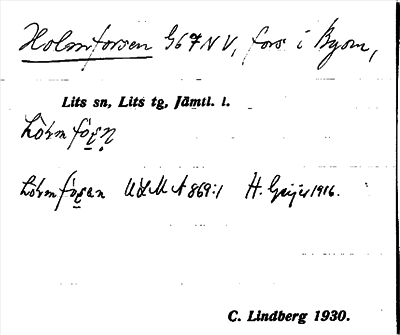 Holmforsen 967NV, fors i Byom,
Lits sn, Lits tg, Jämtl. l.
hòɫmfo̱ṣṇ
hòɫmfo̱ṣan ULMA 869:1 H. Geijer 1916.
C. Lindberg 1930.